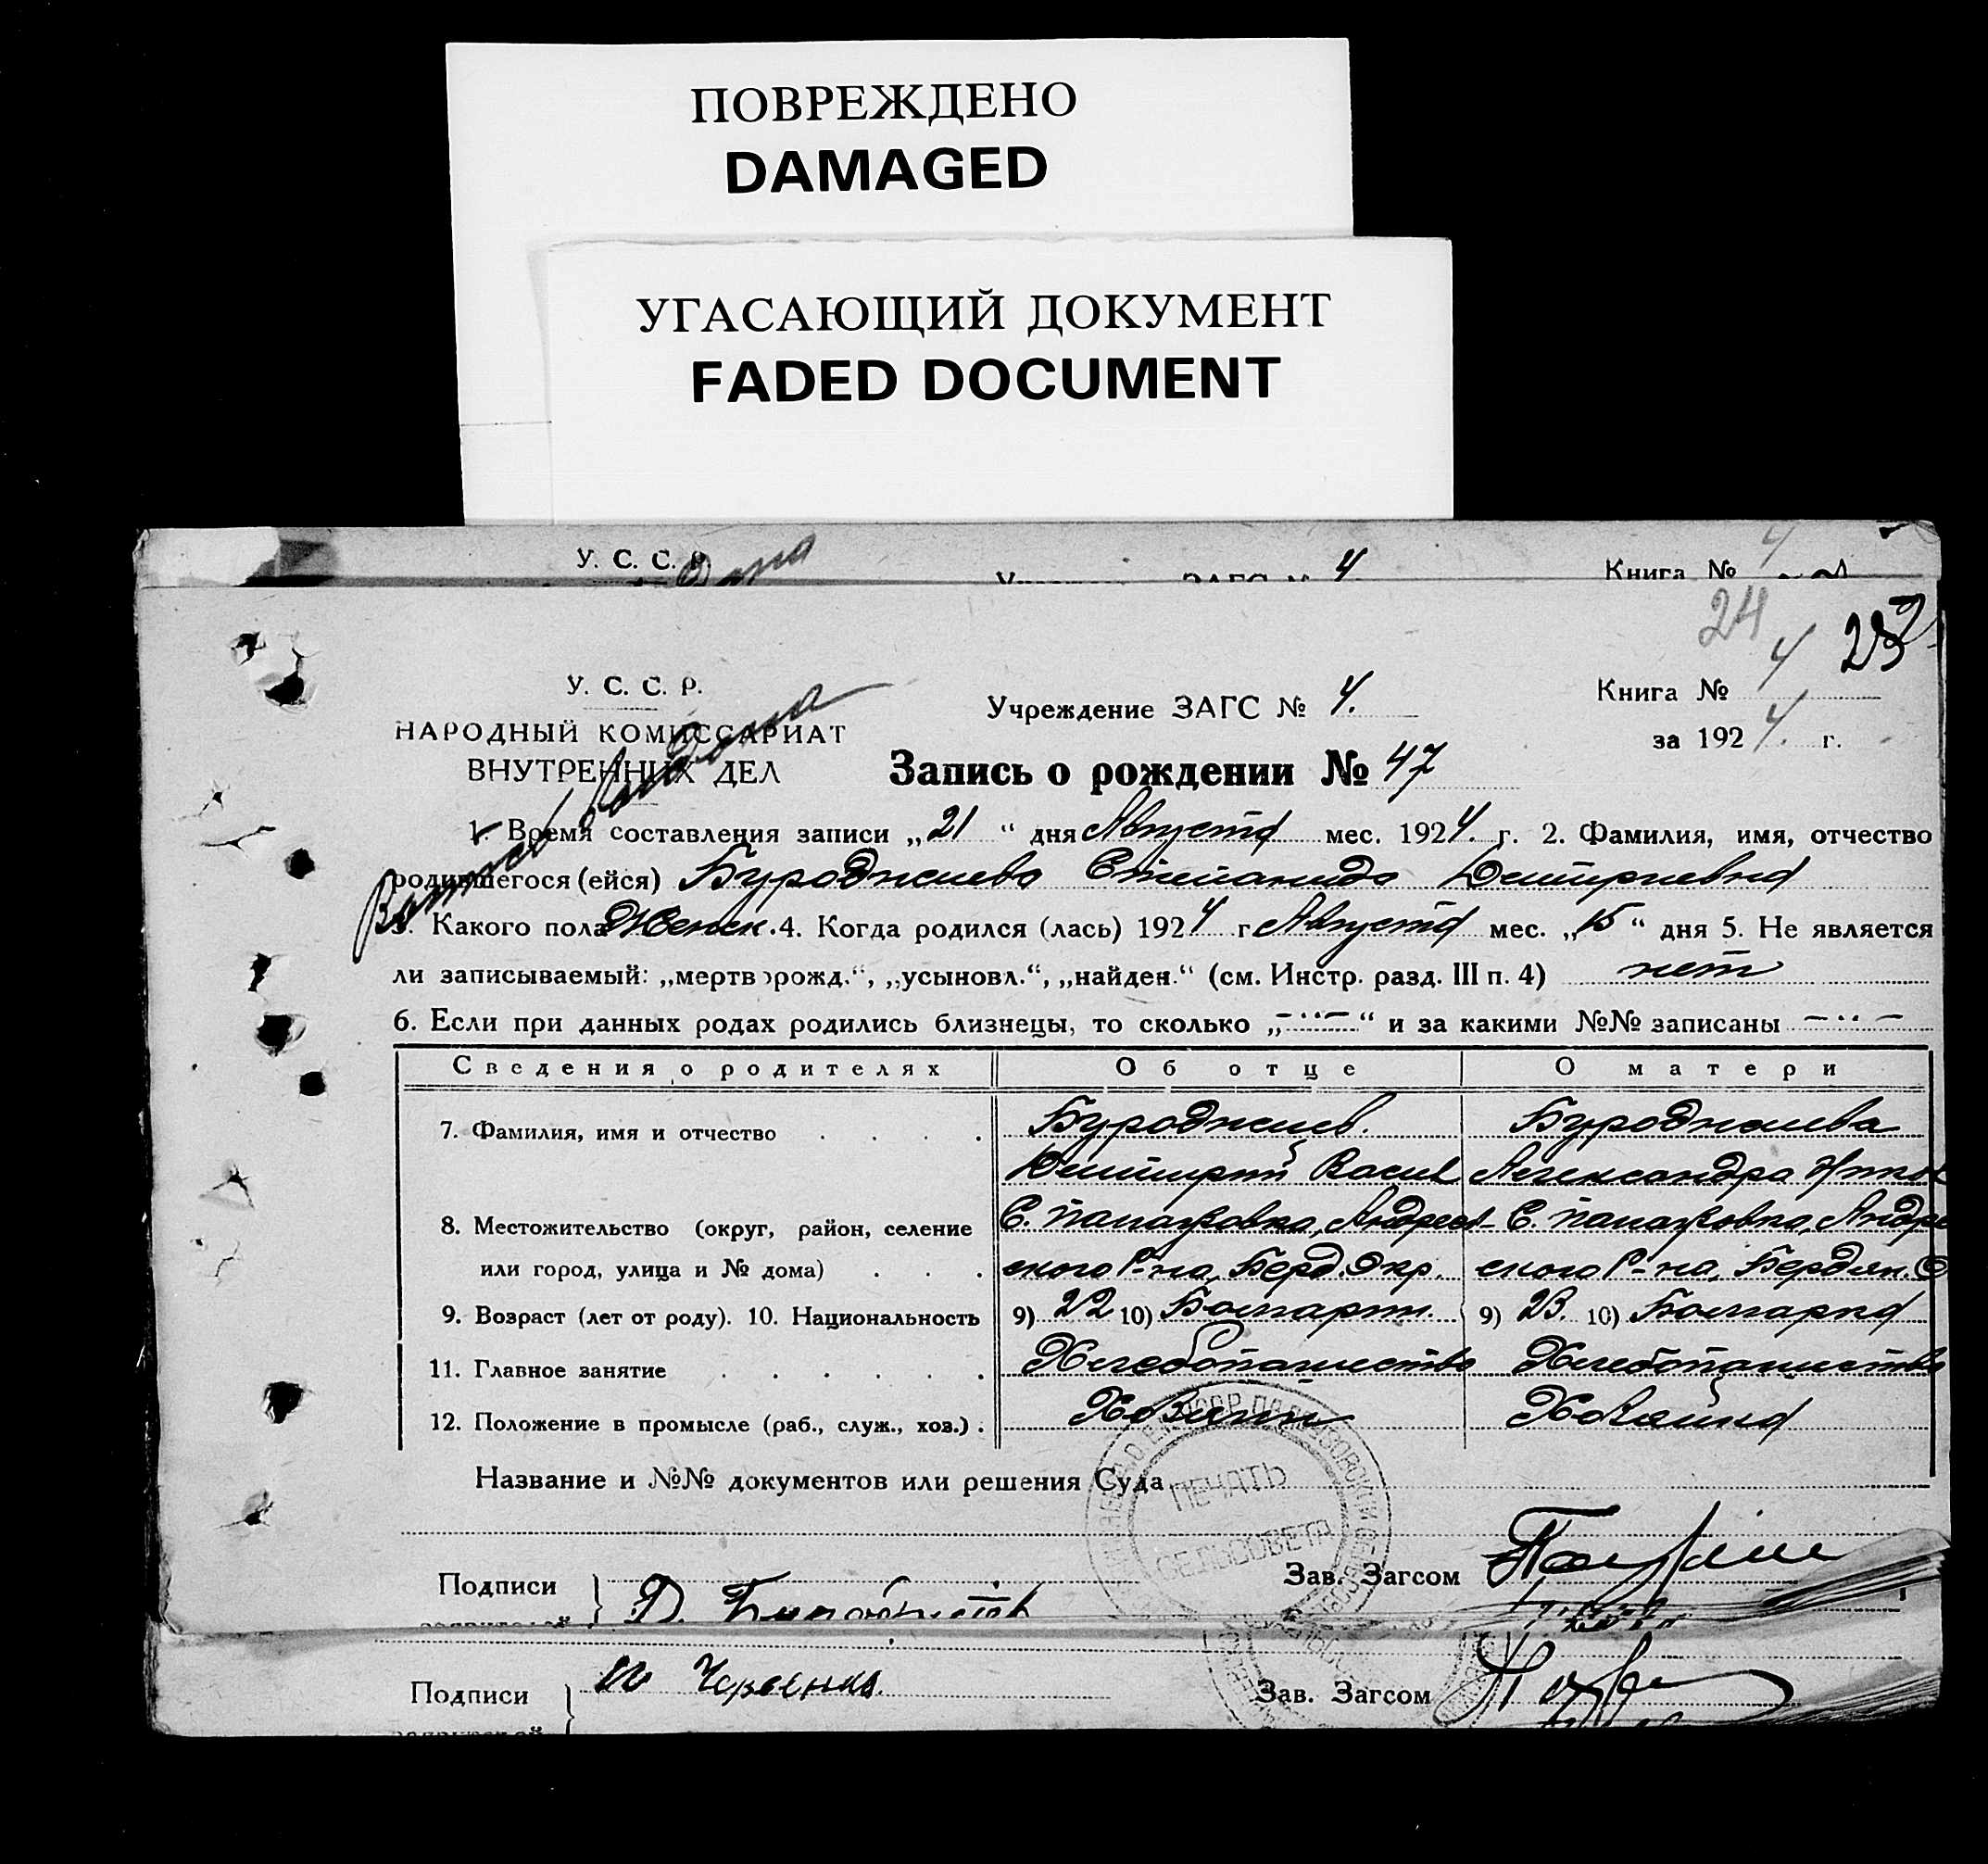 ПОВРЕЖДЕНО
DAMAGED
УГАСАЮЩИЙ ДОКУМЕНТ
FADED DOCUMENT
У. С. С. Р.
4
Книга № 4
24
25
У. С. С. Р.
Учреждение ЗАГС № 4.
Книга № 4
НАРОДНЫЙ КОМИССАРИАТ
за 1924. г.
ВНУТРЕННИХ ДЕЛ
Запись о рождении № 47
1. Время составления записи „21 “ дня Августа мес. 1924. г. 2. Фамилия, имя, отчество
родившегося (ейся) Буроджиева Степанида Дмитриевна
3. Какого пола Женск. 4. Когда родился (лась) 1924 г Августа мес. „15 “ дня 5. Не является
ли записываемый: „мертворожд.“, „усыновл.“, „найден.“ (см. Инстр. разд. III п. 4) нет
6. Если при данных родах родились близнецы, то сколько „-"-“ и за какими №№ записаны -"-
Сведения о родителях Об отце О матери
7. Фамилия, имя и отчество Буроджиев. Буроджиева
Дмитрий Васил Александра
8. Местожительство (округ, район, селение С. Палаузовка, Андреев- С. Палаузовка, Андре
или город, улица и № дома) ского Р-на, Берд. Окр. ского Р-на, Бердян. О
9. Возраст (лет от роду). 10. Национальность 9) 22 10) Болгарин. 9) 23. 10) Болгарка
11. Главное занятие Хлебопашество Хлебопашество
12. Положение в промысле (раб., служ., хоз.) . Хозяин Хозяйка
Название и №№ документов или решения Суда
ПЕЧАТЬ
СЕЛЬСОВЕТА
Подписи Д. Зав. Загсом
Подписи Зав. Загсом